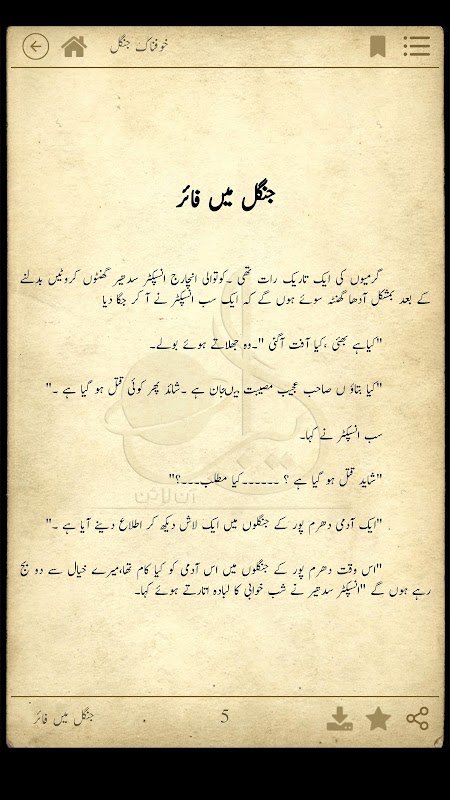 خوفناک جنگل
جنگل میں فائر
گرمیوں کی ایک تاریک رات تھی ۔کوتوالی انچارج انسپکٹر سدھیر گھنٹوں کروٹیں بدلنے
کے بعد بمشکل آدھا گھنٹہ سوئے ہوں گے کہ ایک سب انسپکٹر نے آ کر جگا دیا
"کیاہے بھئی ،کیا آفت آگئی "۔وہ جھلاتے ہوئے بولے۔
"کیا بتاؤ ں صاحب عجیب مصیبت میں جان ہے ۔شائد پھر کوئی قتل ہو گیا ہے ۔"
سب انسپکٹر نے کہا۔
"شاید قتل ہو گیا ہے ؟ ۔۔۔۔۔۔کیا مطلب۔۔۔؟"
"ایک آدمی دھرم پور کے جنگلوں میں ایک لاش دیکھ کر اطلاع دینے آیا ہے ۔"
"اس وقت دھرم پور کے جنگلوں میں اس آدمی کو کیا کام تھا،میرے خیال سے دو بج
رہے ہوں گے "انسپکٹر سدھیر نے شب خوابی کا لبادہ اتارتے ہوئے کہا۔
آن لائن
جنگل میں فائر
5